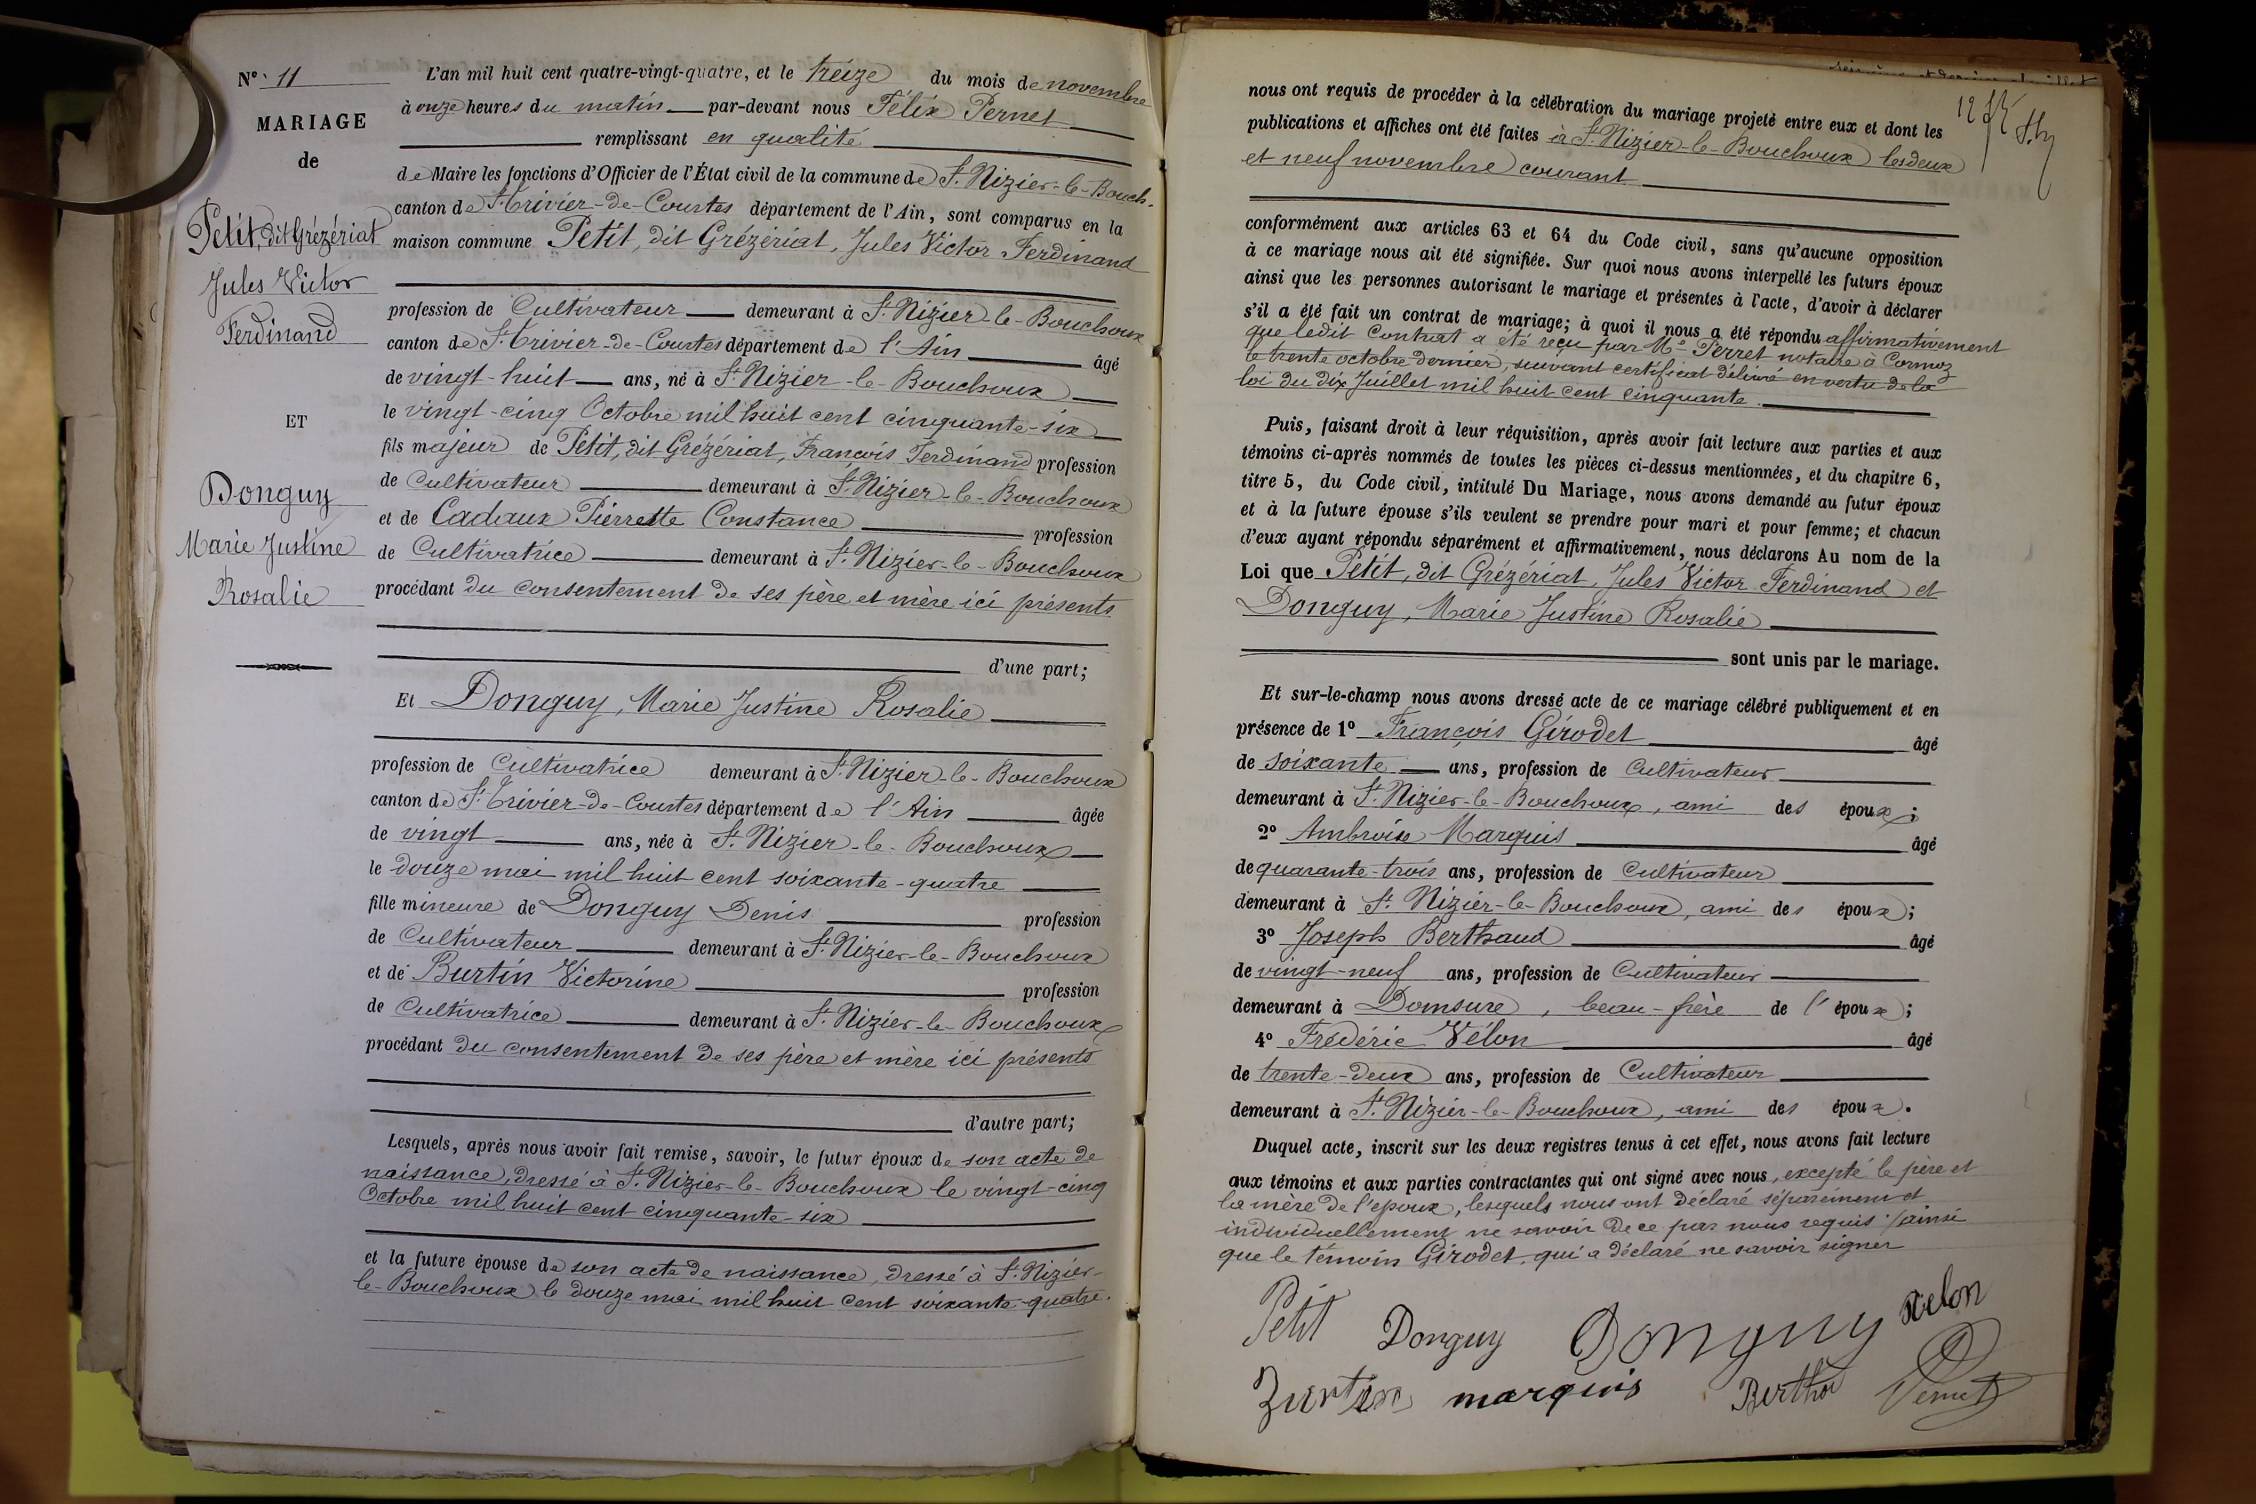 N° 11
MARIAGE
de
Petit, dit Grézériat
Jules Victor
Ferdinand
ET
Donguy
Marie Justine
Rosalie
L'an mil huit cent quatre-vingt-quatre, et le treize du mois de novembre
à onze heures du matin par-devant nous Félix Pernet
remplissant en qualité
de Maire les fonctions d'Officier de l'État civil de la commune de St Nizier-le-Bouch.
canton de St Trivier-de-Courtes département de l'Ain, sont comparus en la
maison commune Petit, dit Grézériat, Jules Victor Ferdinand
profession de Cultivateur demeurant à St Nizier-le-Bouchoux
canton de St Trivier-de-Courtes département de l'Ain âgé
de vingt-huit ans, né à St Nizier-le-Bouchoux
le vingt-cinq Octobre mil huit cent cinquante-six
fils majeur de Petit, dit Grézériat, François Ferdinand profession
de Cultivateur demeurant à St Nizier-le-Bouchoux
et de Cadoux Pierrette Constance profession
de Cultivatrice demeurant à St Nizier-le-Bouchoux
procédant du consentement de ses père et mère ici présents
d'une part;
Et Donguy, Marie Justine Rosalie
profession de Cultivatrice demeurant à St Nizier-le-Bouchoux
canton de St Trivier-de-Courtes département de l'Ain âgée
de vingt ans, née à St Nizier-le-Bouchoux
le douze mai mil huit cent soixante-quatre
fille mineure de Donguy Denis profession
de Cultivateur demeurant à St Nizier-le-Bouchoux
et de Burtin Victorine profession
de Cultivatrice demeurant à St Nizier-le-Bouchoux
procédant du consentement de ses père et mère ici présents
d'autre part;
Lesquels, après nous avoir fait remise, savoir, le futur époux de son acte de
naissance, dressé à St Nizier-le-Bouchoux le vingt-cinq
Octobre mil huit cent cinquante-six
et la future épouse de son acte de naissance, dressé à St Nizier-
le-Bouchoux le douze mai mil huit cent soixante-quatre.
nous ont requis de procéder à la célébration du mariage projeté entre eux et dont les
publications et affiches ont été faites à St Nizier-le-Bouchoux les deux
et neuf novembre courant
conformément aux articles 63 et 64 du Code civil, sans qu'aucune opposition
à ce mariage nous ait été signifiée. Sur quoi nous avons interpellé les futurs époux
ainsi que les personnes autorisant le mariage et présentes à l'acte, d'avoir à déclarer
s'il a été fait un contrat de mariage; à quoi il nous a été répondu affirmativement
que ledit Contrat a été reçu par Me Perret notaire à Cormoz
le trente octobre dernier, suivant certificat délivré en vertu de la
loi du dix Juillet mil huit cent cinquante.
Puis, faisant droit à leur réquisition, après avoir fait lecture aux parties et aux
témoins ci-après nommés de toutes les pièces ci-dessus mentionnées, et du chapitre 6,
titre 5, du Code civil, intitulé Du Mariage, nous avons demandé au futur époux
et à la future épouse s'ils veulent se prendre pour mari et pour femme; et chacun
d'eux ayant répondu séparément et affirmativement, nous déclarons Au nom de la
Loi que Petit, dit Grézériat, Jules Victor Ferdinand et
Donguy, Marie Justine Rosalie
sont unis par le mariage.
Et sur-le-champ nous avons dressé acte de ce mariage célébré publiquement et en
présence de 1° François Girodet âgé
de soixante ans, profession de Cultivateur
demeurant à St Nizier-le-Bouchoux, ami des époux;
2° Ambroise Marquis âgé
de quarante-trois ans, profession de Cultivateur
demeurant à St Nizier-le-Bouchoux, ami des époux;
3° Joseph Berthaud âgé
de vingt-neuf ans, profession de Cultivateur
demeurant à Domsure, beau-frère de l'époux;
4° Frédéric Vélon âgé
de trente-deux ans, profession de Cultivateur
demeurant à St Nizier-le-Bouchoux, ami des époux.
Duquel acte, inscrit sur les deux registres tenus à cet effet, nous avons fait lecture
aux témoins et aux parties contractantes qui ont signé avec nous, excepté le père et
la mère de l'époux, lesquels nous ont déclaré séparément et
individuellement ne savoir de ce par nous requis ainsi
que le témoin Girodet, qui a déclaré ne savoir signer
Petit Donguy Donguy Velon
Burtin marquis Bertho Pernet